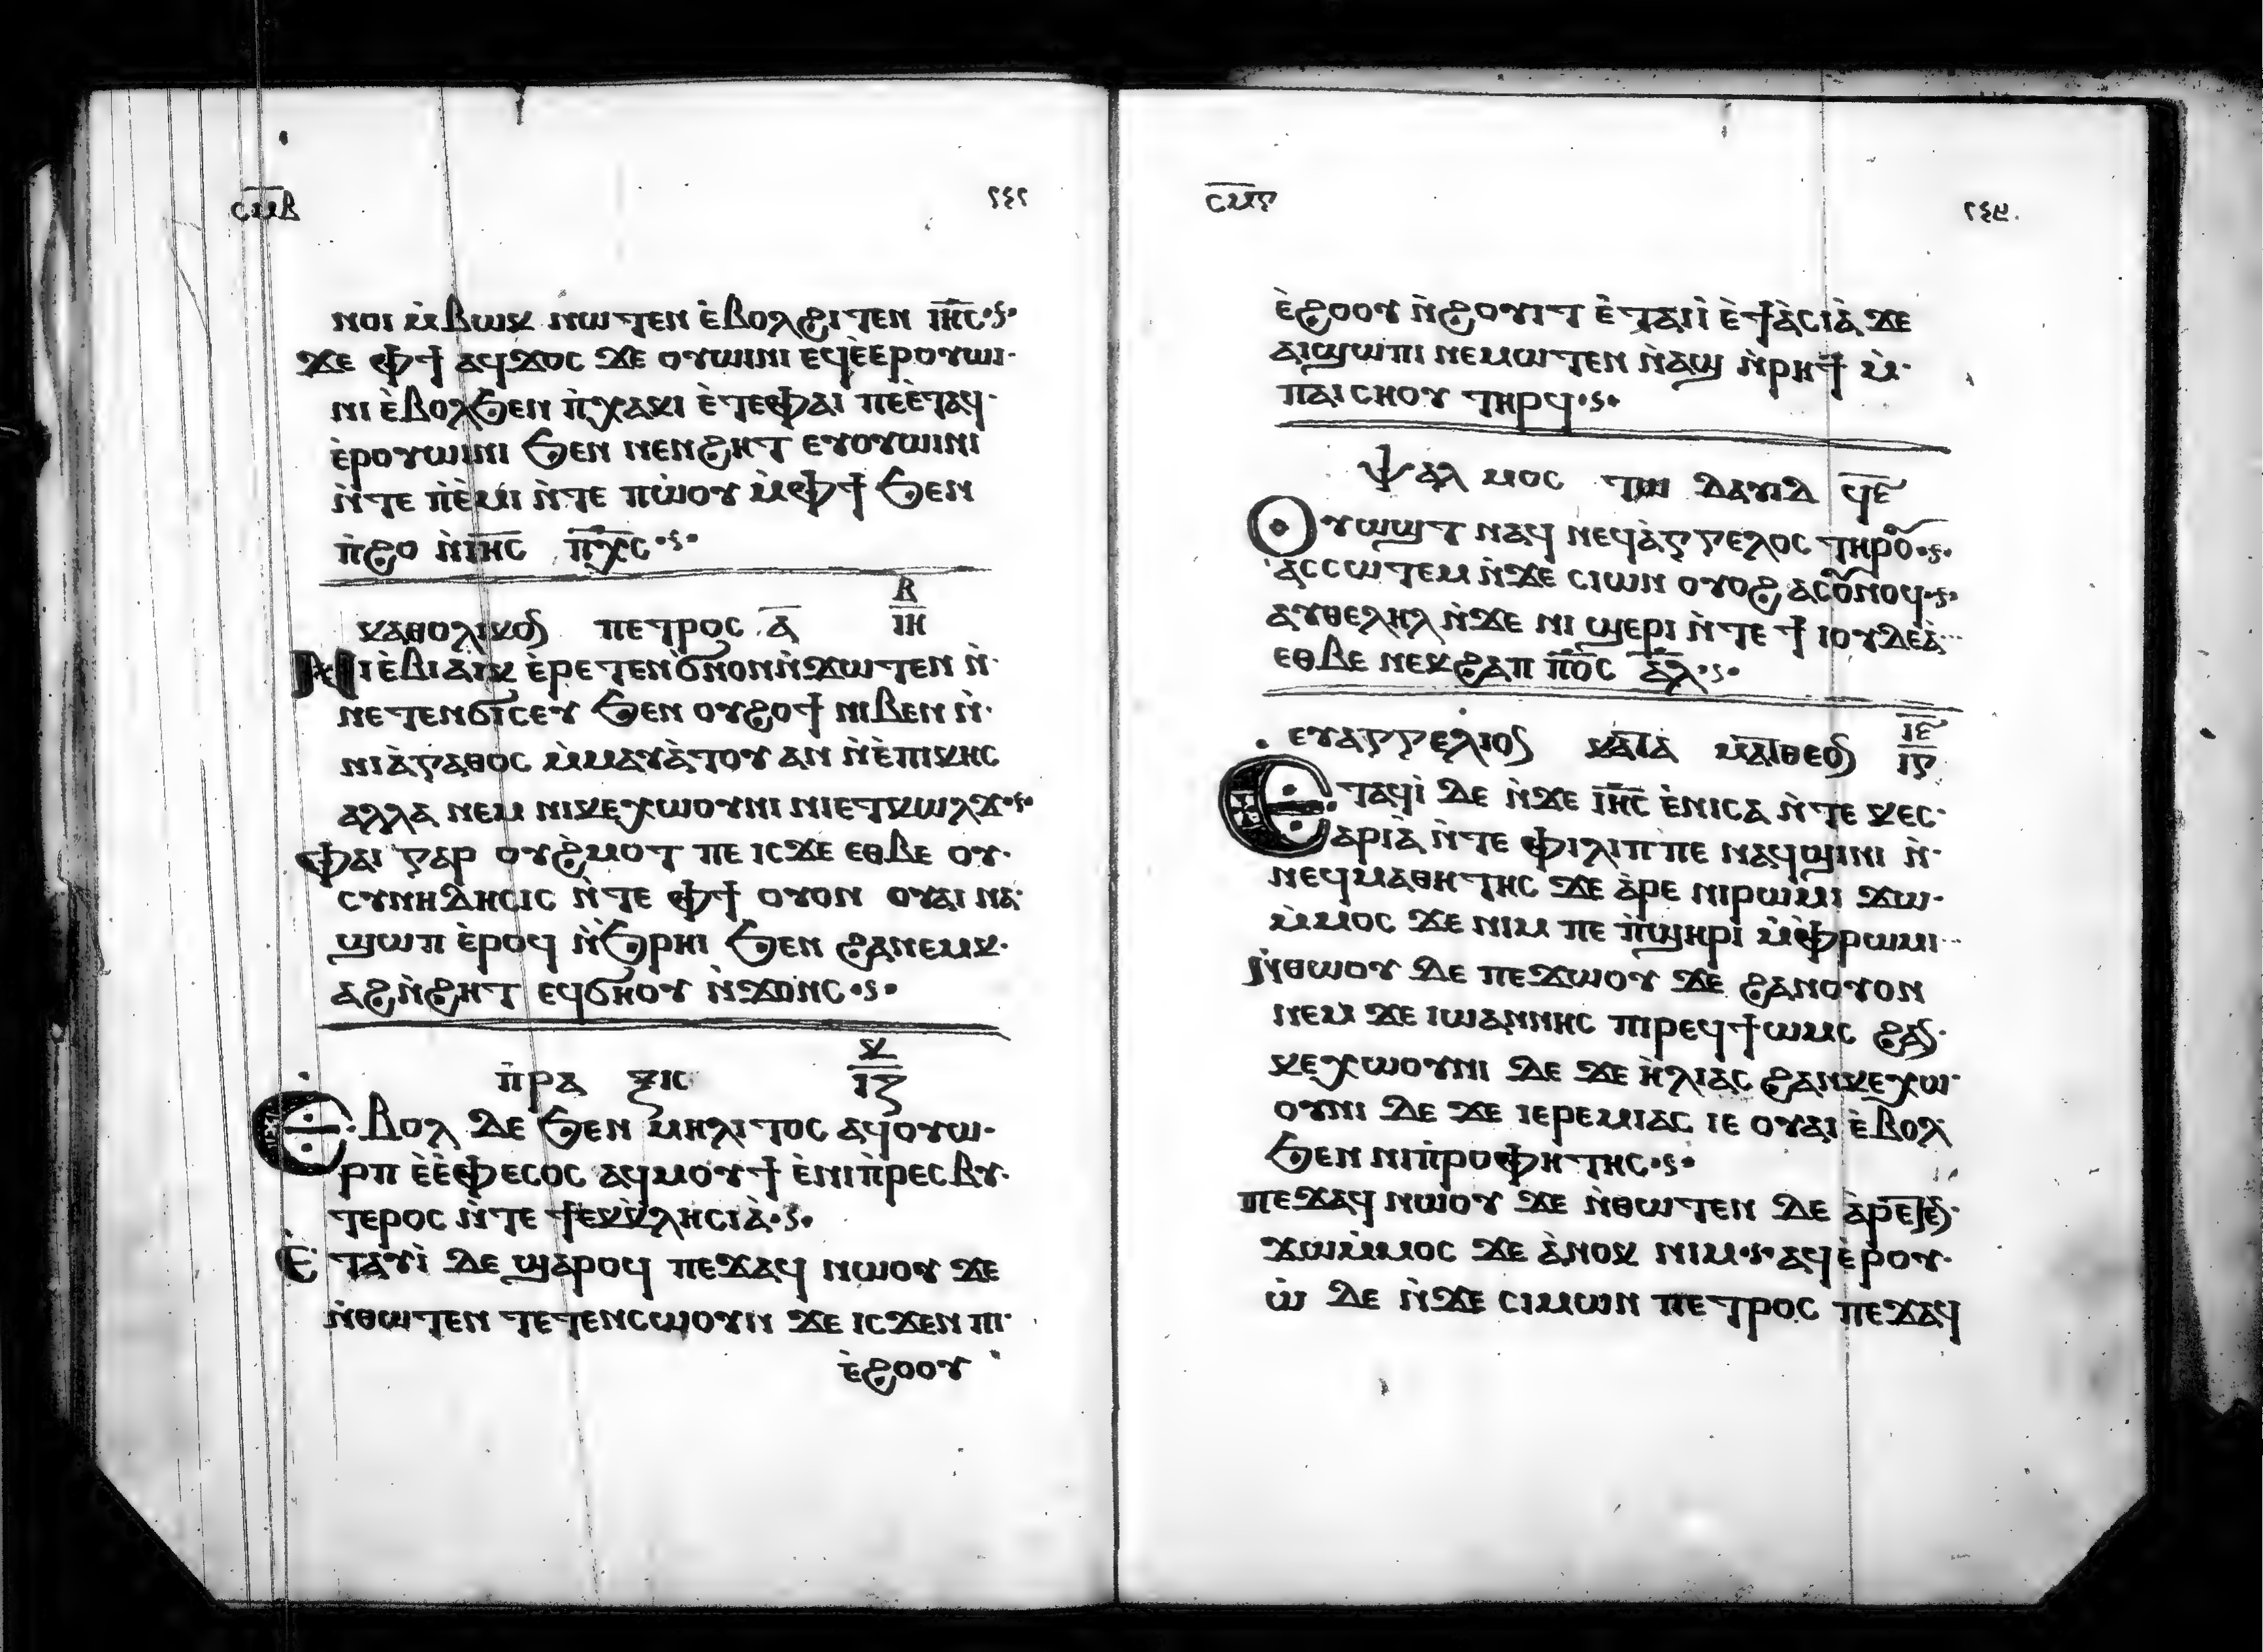 ⲥⲙⲃ ٢٤٢
ⲛⲟⲓ ⲙ̀ⲃⲱⲕ ⲛⲱⲧⲉⲛ ⲉ̀ⲃⲟⲗϩⲓⲧⲉⲛ ⲓⲏ̅ⲥ̅
ϫⲉ ⲫϯ ⲁϥϫⲟⲥ ϫⲉ ⲟⲩⲱⲓⲛⲓ ⲉϥⲉ̀ⲉⲣⲟⲩⲱⲓ
ⲛⲓ ⲉ̀ⲃⲟⲗϧⲉⲛ ⲡ̀ⲭⲁⲕⲓ ⲉ̀ⲧⲉⲫⲁⲓ ⲡⲉⲉ̀ⲧⲁϥ
ⲉ̀ⲣⲟⲩⲱⲓⲛⲓ ϧⲉⲛ ⲛⲉⲛϩⲏⲧ ⲉⲩⲟⲩⲱⲓⲛⲓ
ⲛ̀ⲧⲉ ⲡ̀ⲉ̀ⲙⲓ ⲛ̀ⲧⲉ ⲡⲱ̀ⲟⲩ ⲙⲫϯ ϧⲉⲛ
ⲡ̀ϩⲟ ⲛ̀ⲓⲏ̅ⲥ̅ ⲡⲭ̅ⲥ̅
ⲕⲁⲑⲟⲗⲓⲕⲟⲛ ⲡⲉⲧⲣⲟⲥ ⲁ̅ ⲃ̅ ⲓⲏ
ⲛⲓⲉ̀ⲃⲓⲁⲓⲕ ⲉ̀ⲣⲉⲧⲉⲛϭⲛⲟⲛⲛ̀ϫⲱⲧⲉⲛ ⲛ̀
ⲛⲉⲧⲉⲛϭⲓⲥⲉⲩ ϧⲉⲛ ⲟⲩϩⲟϯ ⲛⲓⲃⲉⲛ ⲛ̀
ⲛⲓⲁ̀ⲅⲁⲑⲟⲥ ⲙ̀ⲙⲁⲩⲁ̀ⲧⲟⲩ ⲁⲛ ⲛ̀ⲉ̀ⲡⲓⲕⲏⲥ
ⲁⲗⲗⲁ ⲛⲉⲙ ⲛⲓⲕⲉⲭⲱⲟⲩⲛⲓ ⲛⲓⲉⲧⲕⲱⲗϫ
ⲫⲁⲓ ⲅⲁⲣ ⲟⲩϩ̀ⲙⲟⲧ ⲡⲉ ⲓⲥϫⲉ ⲉⲑⲃⲉ ⲟⲩ
ⲥⲩⲛⲏⲇⲏⲥⲓⲥ ⲛ̀ⲧⲉ ⲫϯ ⲟⲩⲟⲛ ⲟⲩⲁⲓ ⲛⲁ
ϣⲱⲡ ⲉ̀ⲣⲟϥ ⲛ̀ϧⲣⲏⲓ ϧⲉⲛ ϩⲁⲛⲉⲙⲕ
ⲁϩⲛ̀ϩⲏⲧ ⲉϥϭⲏⲟⲩ ⲛ̀ϫⲟⲛⲥ
ⲡ̀ⲣⲁ ⲝⲓⲥ ⲕ ⲓⲍ
ⲉⲃⲟⲗ ⲇⲉ ϧⲉⲛ ⲙⲏⲗⲓⲧⲟⲥ ⲁϥⲟⲩⲱ
ⲣⲡ ⲉ̀ⲉ̀ⲫⲉⲥⲟⲥ ⲁϥⲙⲟⲩϯ ⲉ̀ⲛⲓⲡ̀ⲣⲉⲥⲃⲩ
ⲧⲉⲣⲟⲥ ⲛ̀ⲧⲉ ϯⲉⲕⲕⲗⲏⲥⲓⲁ̀
ⲉ̀ⲧⲁⲩⲓ̀ ⲇⲉ ϣⲁⲣⲟϥ ⲡⲉϫⲁϥ ⲛⲱⲟⲩ ϫⲉ
ⲛ̀ⲑⲱⲧⲉⲛ ⲧⲉⲧⲉⲛⲥⲱⲟⲩⲛ ϫⲉ ⲓⲥϫⲉⲛ ⲡⲓ
ⲉ̀ϩⲟⲟⲩ
ⲥⲙⲅ ٢٤٣
ⲉ̀ϩⲟⲟⲩ ⲛ̀ϩⲟⲩⲓⲧ ⲉ̀ⲧⲁⲓⲓ̀ ⲉ̀ϯⲁ̀ⲥⲓⲁ̀ ϫⲉ
ⲁⲓϣⲱⲡⲓ ⲛⲉⲙⲱⲧⲉⲛ ⲛ̀ⲁϣ ⲛ̀ⲣⲏϯ ⲙ̀
ⲡⲁⲓⲥⲏⲟⲩ ⲧⲏⲣϥ
ⲯⲁⲗ ⲙⲟⲥ ⲧⲱ ⲇⲁⲩⲓⲇ ϥⲉ̅
ⲟⲩⲱϣⲧ ⲛⲁϥ ⲛⲉϥⲁ̀ⲅⲅⲉⲗⲟⲥ ⲧⲏⲣⲟⲩ
ⲁⲥⲥⲱⲧⲉⲙ ⲛ̀ϫⲉ ⲥⲓⲱⲛ ⲟⲩⲟϩ ⲁⲥⲟⲩⲛⲟϥ
ⲁⲩⲑⲉⲗⲏⲗ ⲛ̀ϫⲉ ⲛⲓ ϣⲉⲣⲓ ⲛ̀ⲧⲉ ϯ ⲓⲟⲩⲇⲉⲁ̀
ⲉⲑⲃⲉ ⲛⲉⲕϩⲁⲡ ⲡ̅ⲟ̅ⲥ̅ ⲁ̅ⲗ̅
ⲉⲩⲁⲅⲅⲉⲗⲓⲟⲛ ⲕⲁⲧⲁ ⲙⲁⲧⲑⲉⲟⲛ ⲓⲉ̅ ⲓⲅ
ⲉⲧⲁϥⲓ̀ ⲇⲉ ⲛ̀ϫⲉ ⲓⲏ̅ⲥ̅ ⲉ̀ⲛⲓⲥⲁ ⲛ̀ⲧⲉ ⲕⲉⲥ
ⲁⲣⲓⲁ̀ ⲛ̀ⲧⲉ ⲫⲓⲗⲓⲡⲡⲉ ⲛⲁϥϣⲓⲛⲓ ⲛ̀
ⲛⲉϥⲙⲁⲑⲏⲧⲏⲥ ϫⲉ ⲁ̀ⲣⲉ ⲛⲓⲣⲱⲙⲓ ϫⲱ
ⲙ̀ⲙⲟⲥ ϫⲉ ⲛⲓⲙ ⲡⲉ ⲡ̀ϣⲏⲣⲓ ⲙ̀ⲫⲣⲱⲙⲓ
ⲛ̀ⲑⲱⲟⲩ ⲇⲉ ⲡⲉϫⲱⲟⲩ ϫⲉ ϩⲁⲛⲟⲩⲟⲛ
ⲙⲉⲛ ϫⲉ ⲓⲱⲁⲛⲛⲏⲥ ⲡⲓⲣⲉϥϯⲱⲙⲥ ϩⲁⲛ
ⲕⲉⲭⲱⲟⲩⲛⲓ ⲇⲉ ϫⲉ ⲏ̀ⲗⲓⲁⲥ ϩⲁⲛⲕⲉⲭⲱ
ⲟⲩⲛⲓ ⲇⲉ ϫⲉ ⲓⲉⲣⲉⲙⲓⲁⲥ ⲓⲉ ⲟⲩⲁⲓ ⲉ̀ⲃⲟⲗ
ϧⲉⲛ ⲛⲓⲡ̀ⲣⲟⲫⲏⲧⲏⲥ
ⲡⲉϫⲁϥ ⲛⲱⲟⲩ ϫⲉ ⲛ̀ⲑⲱⲧⲉⲛ ⲇⲉ ⲁ̀ⲣⲉⲧⲉⲛ
ϫⲱⲙ̀ⲙⲟⲥ ϫⲉ ⲁ̀ⲛⲟⲕ ⲛⲓⲙ ⲁϥⲉ̀ⲣⲟⲩ
ⲱ̀ ⲇⲉ ⲛ̀ϫⲉ ⲥⲓⲙⲱⲛ ⲡⲉⲧⲣⲟⲥ ⲡⲉϫⲁϥ